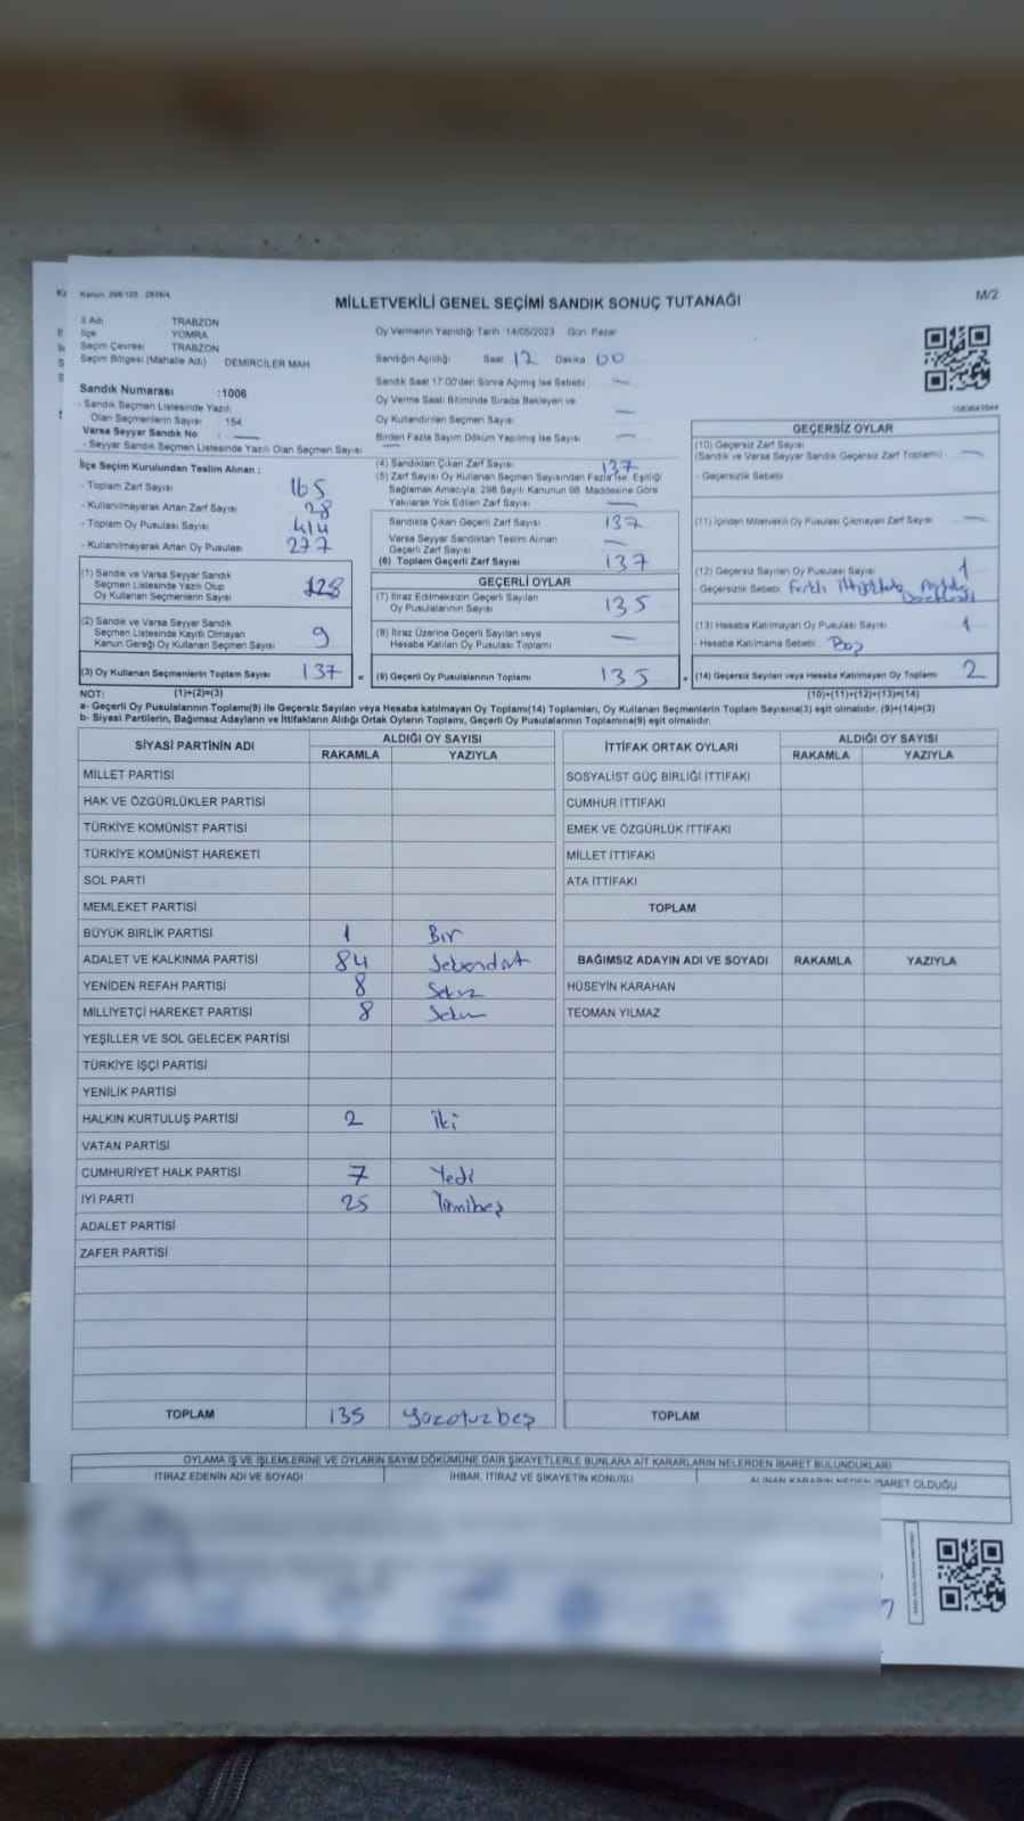 M/2
MİLLETVEKİLİ GENEL SEÇİMİ SANDIK SONUÇ TUTANAĞI
İl Adı TRABZON
İlçe YOMRA
Seçim Çevresi TRABZON
Seçim Bölgesi (Mahalle Adı) DEMİRCİLER MAH
Sandık Numarası :1006
- Sandık Seçmen Listesinde Yazılı
Olan Seçmenlerin Sayısı 154
Varsa Seyyar Sandık No
- Seyyar Sandık Seçmen Listesinde Yazılı Olan Seçmen Sayısı
Oy Vermenin Yapıldığı Tarih 14/05/2023 Gün Pazar
Sandığın Açıldığı Saat 12 Dakika 00
Sandık Saat 17:00'den Sonra Açılmış İse Sebebi
Oy Verme Saati Bitiminde Sırada Bekleyen ve
Oy Kullandırılan Seçmen Sayısı
Birden Fazla Sayım Döküm Yapılmış İse Sayısı
İlçe Seçim Kurulundan Teslim Alınan :
- Toplam Zarf Sayısı 165
- Kullanılmayarak Artan Zarf Sayısı 28
- Toplam Oy Pusulası Sayısı 414
- Kullanılmayarak Artan Oy Pusulası 277
(1) Sandık ve Varsa Seyyar Sandık
Seçmen Listesinde Yazılı Olup
Oy Kullanan Seçmenlerin Sayısı 128
(2) Sandık ve Varsa Seyyar Sandık
Seçmen Listesinde Kayıtlı Olmayan
Kanun Gereği Oy Kullanan Seçmen Sayısı 9
(3) Oy Kullanan Seçmenlerin Toplam Sayısı 137
(1)+(2)=(3)
(4) Sandıktan Çıkan Zarf Sayısı 137
(5) Zarf Sayısı Oy Kullanan Seçmen Sayısından Fazla İse, Eşitliği
Sağlamak Amacıyla, 298 Sayılı Kanunun 98. Maddesine Göre
Yakılarak Yok Edilen Zarf Sayısı
Sandıkta Çıkan Geçerli Zarf Sayısı 137
Varsa Seyyar Sandıktan Teslim Alınan
Geçerli Zarf Sayısı
(6) Toplam Geçerli Zarf Sayısı 137
GEÇERLİ OYLAR
(7) İtiraz Edilmeksizin Geçerli Sayılan
Oy Pusulalarının Sayısı 135
(8) İtiraz Üzerine Geçerli Sayılan veya
Hesaba Katılan Oy Pusulası Toplamı
(9) Geçerli Oy Pusulalarının Toplamı 135
GEÇERSİZ OYLAR
(10) Geçersiz Zarf Sayısı
(Sandık ve Varsa Seyyar Sandık Geçersiz Zarf Toplamı)
- Geçersizlik Sebebi
(11) İçinden Milletvekili Oy Pusulası Çıkmayan Zarf Sayısı
(12) Geçersiz Sayılan Oy Pusulası Sayısı 1
Geçersizlik Sebebi Farklı
(13) Hesaba Katılmayan Oy Pusulası Sayısı 1
- Hesaba Katılmama Sebebi Boş
(14) Geçersiz Sayılan veya Hesaba Katılmayan Oy Toplamı 2
(10)+(11)+(12)+(13)=(14)
NOT:
a- Geçerli Oy Pusulalarının Toplamı(9) ile Geçersiz Sayılan veya Hesaba katılmayan Oy Toplamı(14) Toplamları, Oy Kullanan Seçmenlerin Toplam Sayısına(3) eşit olmalıdır. (9)+(14)=(3)
b- Siyasi Partilerin, Bağımsız Adayların ve İttifakların Aldığı Ortak Oyların Toplamı, Geçerli Oy Pusulalarının Toplamına(9) eşit olmalıdır.
SİYASİ PARTİNİN ADI ALDIĞI OY SAYISI
RAKAMLA YAZIYLA
MİLLET PARTİSİ
HAK VE ÖZGÜRLÜKLER PARTİSİ
TÜRKİYE KOMÜNİST PARTİSİ
TÜRKİYE KOMÜNİST HAREKETİ
SOL PARTİ
MEMLEKET PARTİSİ
BÜYÜK BİRLİK PARTİSİ 1 Bir
ADALET VE KALKINMA PARTİSİ 84 Seksendört
YENİDEN REFAH PARTİSİ 8 Sekiz
MİLLİYETÇİ HAREKET PARTİSİ 8 Sekiz
YEŞİLLER VE SOL GELECEK PARTİSİ
TÜRKİYE İŞÇİ PARTİSİ
YENİLİK PARTİSİ
HALKIN KURTULUŞ PARTİSİ 2 İki
VATAN PARTİSİ
CUMHURİYET HALK PARTİSİ 7 Yedi
İYİ PARTİ 25 Yirmibeş
ADALET PARTİSİ
ZAFER PARTİSİ
TOPLAM 135 Yüzotuzbeş
İTTİFAK ORTAK OYLARI ALDIĞI OY SAYISI
RAKAMLA YAZIYLA
SOSYALİST GÜÇ BİRLİĞİ İTTİFAKI
CUMHUR İTTİFAKI
EMEK VE ÖZGÜRLÜK İTTİFAKI
MİLLET İTTİFAKI
ATA İTTİFAKI
TOPLAM
BAĞIMSIZ ADAYIN ADI VE SOYADI RAKAMLA YAZIYLA
HÜSEYİN KARAHAN
TEOMAN YILMAZ
TOPLAM
OYLAMA İŞ VE İŞLEMLERİNE VE OYLARIN SAYIM DÖKÜMÜNE DAİR ŞİKAYETLERLE BUNLARA AİT KARARLARIN NELERDEN İBARET BULUNDUKLARI
İTİRAZ EDENİN ADI VE SOYADI İHBAR, İTİRAZ VE ŞİKAYETİN KONUSU ALINAN KARARIN NEDEN İBARET OLDUĞU